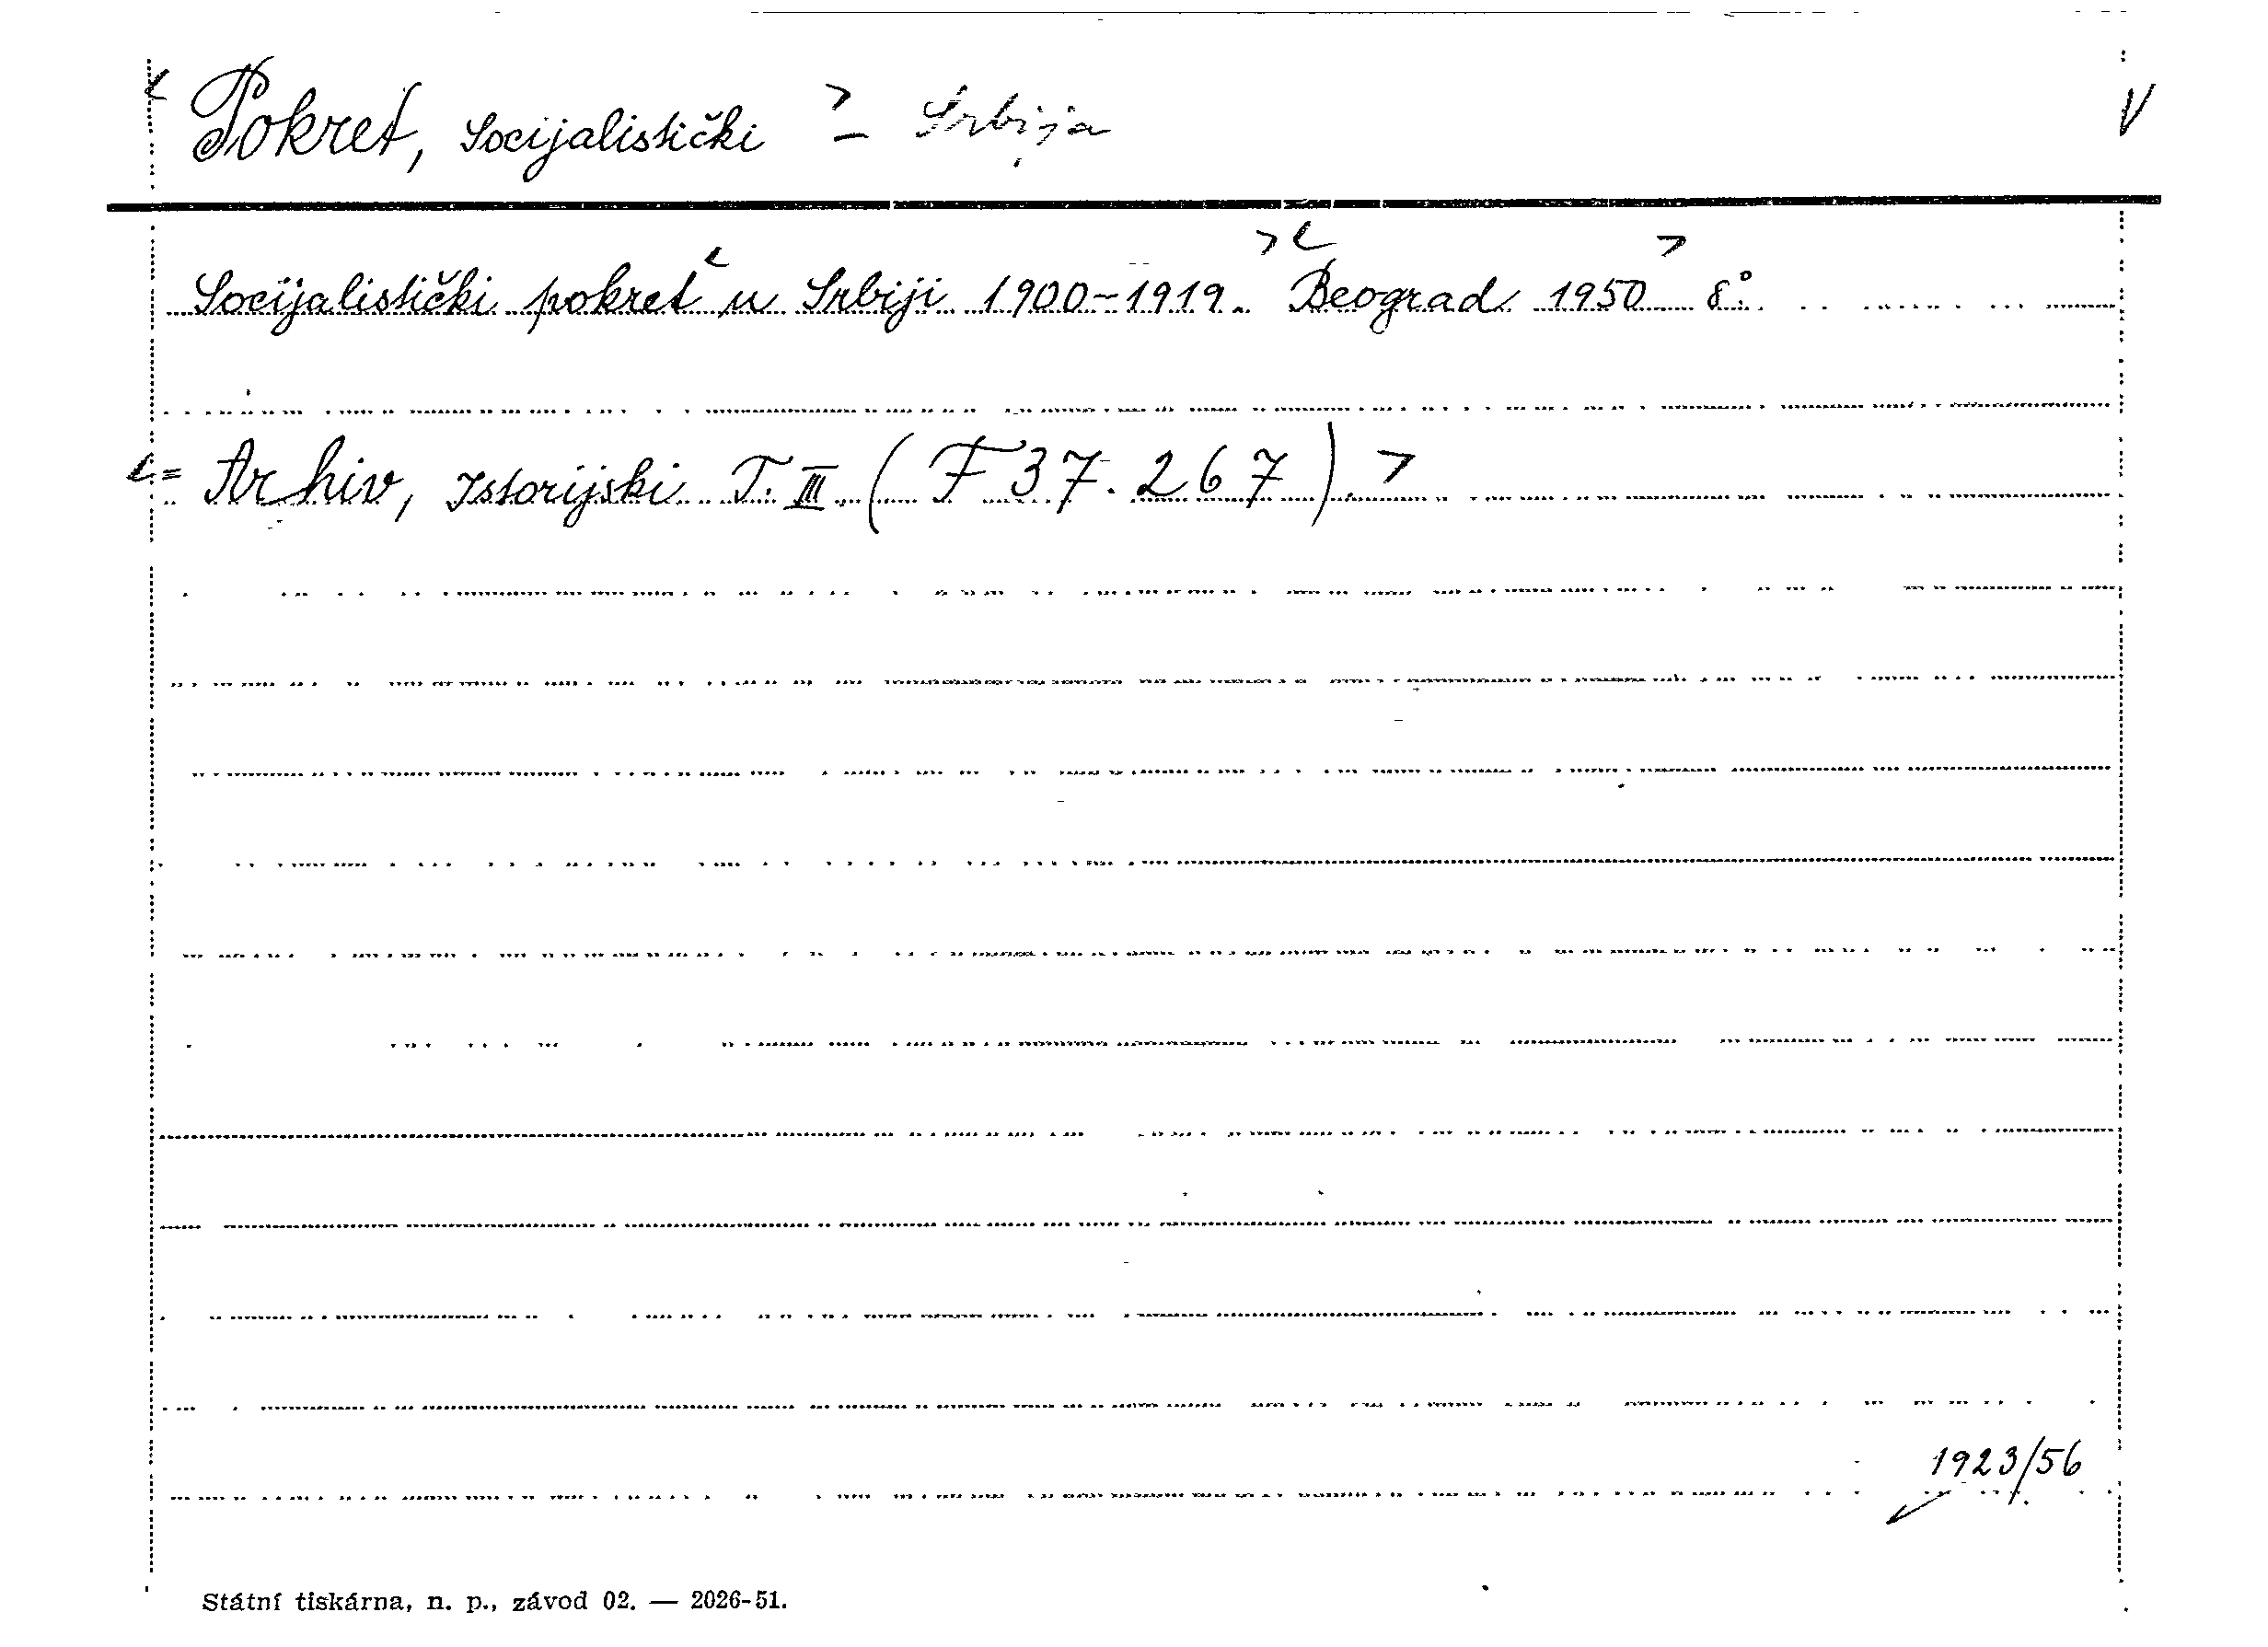 < Pokret, Socijalistički > – Srbija V
Socijalistički pokret < u Srbiji 1900–1919. > < Beograd 1950 > 8°.
< = Arhiv, Istorijski T. III (F 37.267). >
1923/56
Státní tiskárna, n. p., závod 02. — 2026-51.